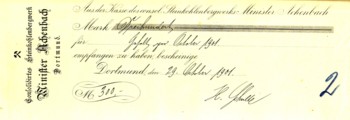 Consolidiertes Steinkohlenbergwerk
Minister Achenbach
Dortmund.
Aus der Kasse des consol. Steinkohlenbergwerks Minister Achenbach
Mark Dreihundert
für Gehalt pro Oktober 1901
empfangen zu haben, bescheinige
Dortmund, den 29. Oktober 1901.
M. 300,
H.
2